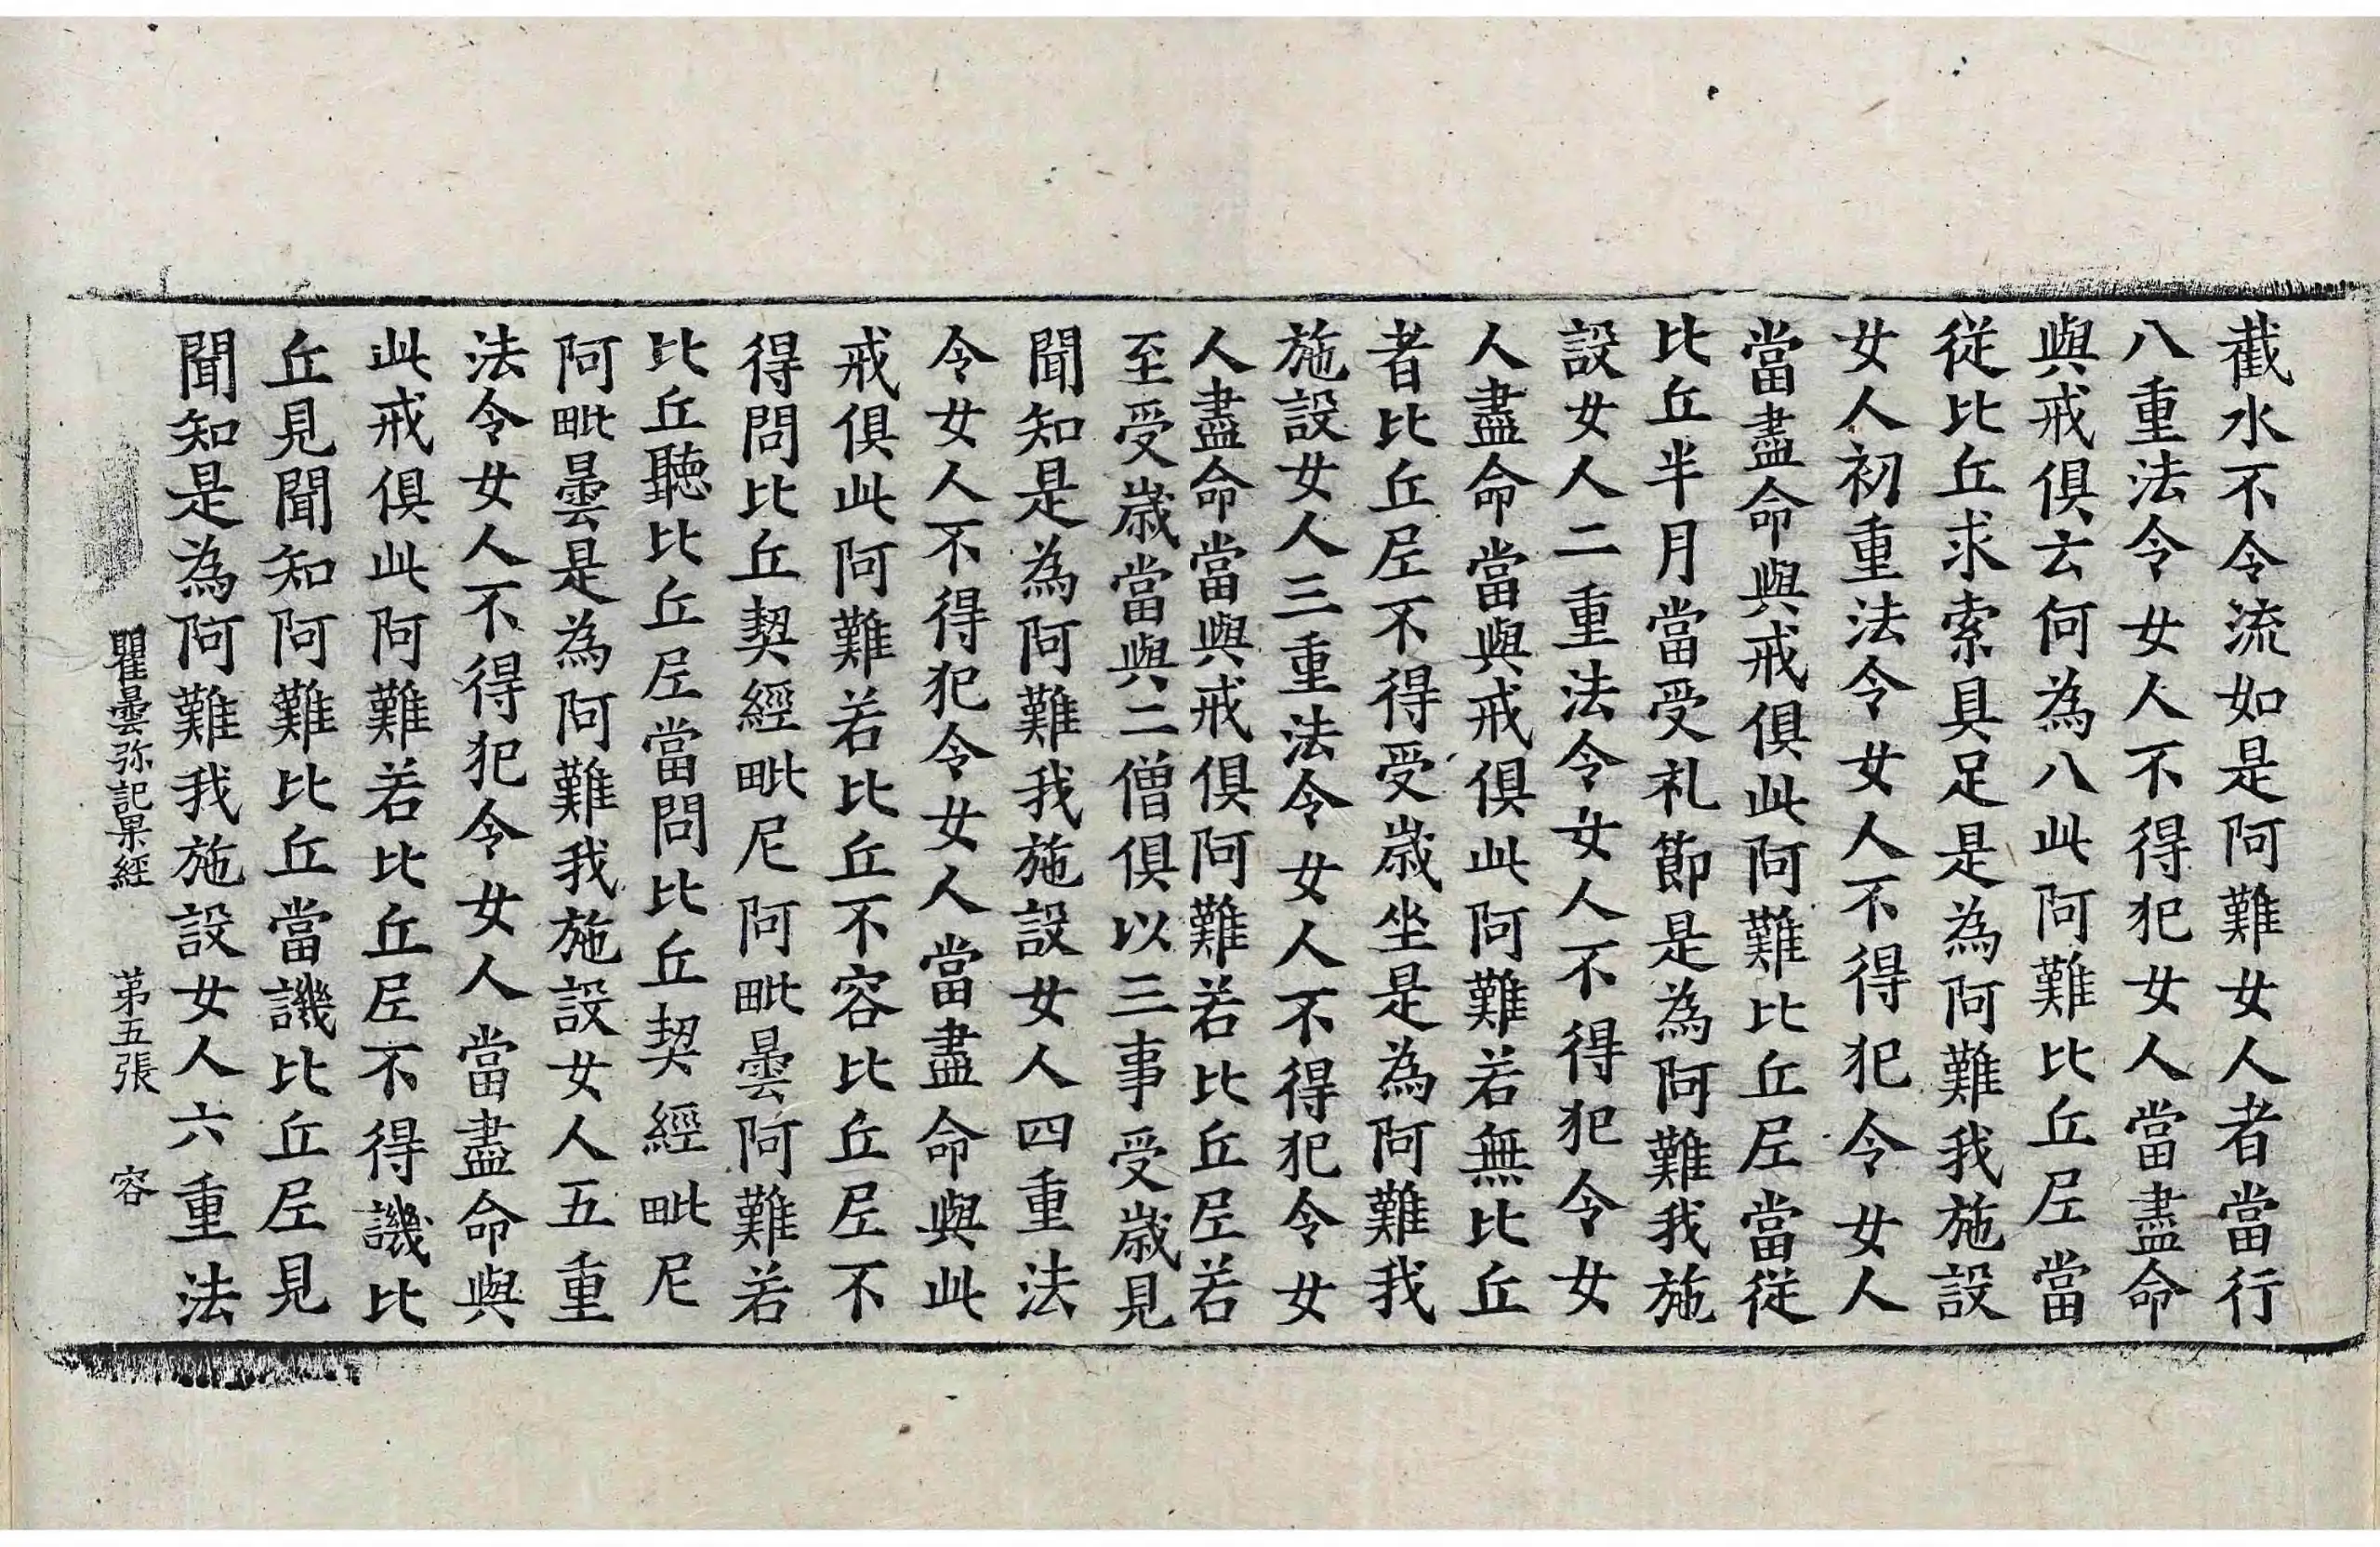 截水不令流如是阿難女人者當行
八重法令女人不得犯女人當盡命
與戒俱云何為八此阿難比丘𡰱當
從比丘求索具足是為阿難我施設
女人初重法令女人不得犯令女人
當盡命與戒俱此阿難比丘𡰱當從
比丘半月當受礼節是為阿難我施
設女人二重法令女人不得犯令女
人盡命當與戒俱此阿難若無比丘
者比丘𡰱不得受歲坐是為阿難我
施設女人三重法令女人不得犯令女
人盡命當與戒俱阿難若比丘𡰱若
至受歲當與二僧俱以三事受歲見
聞知是為阿難我施設女人四重法
令女人不得犯令女人當盡命與此
戒俱此阿難若比丘不容比丘𡰱不
得問比丘契經毗尼阿毗曇阿難若
比丘聽比丘𡰱當問比丘契經毗尼
阿毗曇是為阿難我施設女人五重
法令女人不得犯令女人當盡命與
此戒俱此阿難若比丘𡰱不得譏比
丘見聞知阿難比丘當譏比丘𡰱見
聞知是為阿難我施設女人六重法
瞿曇弥記果經 苐五張 容